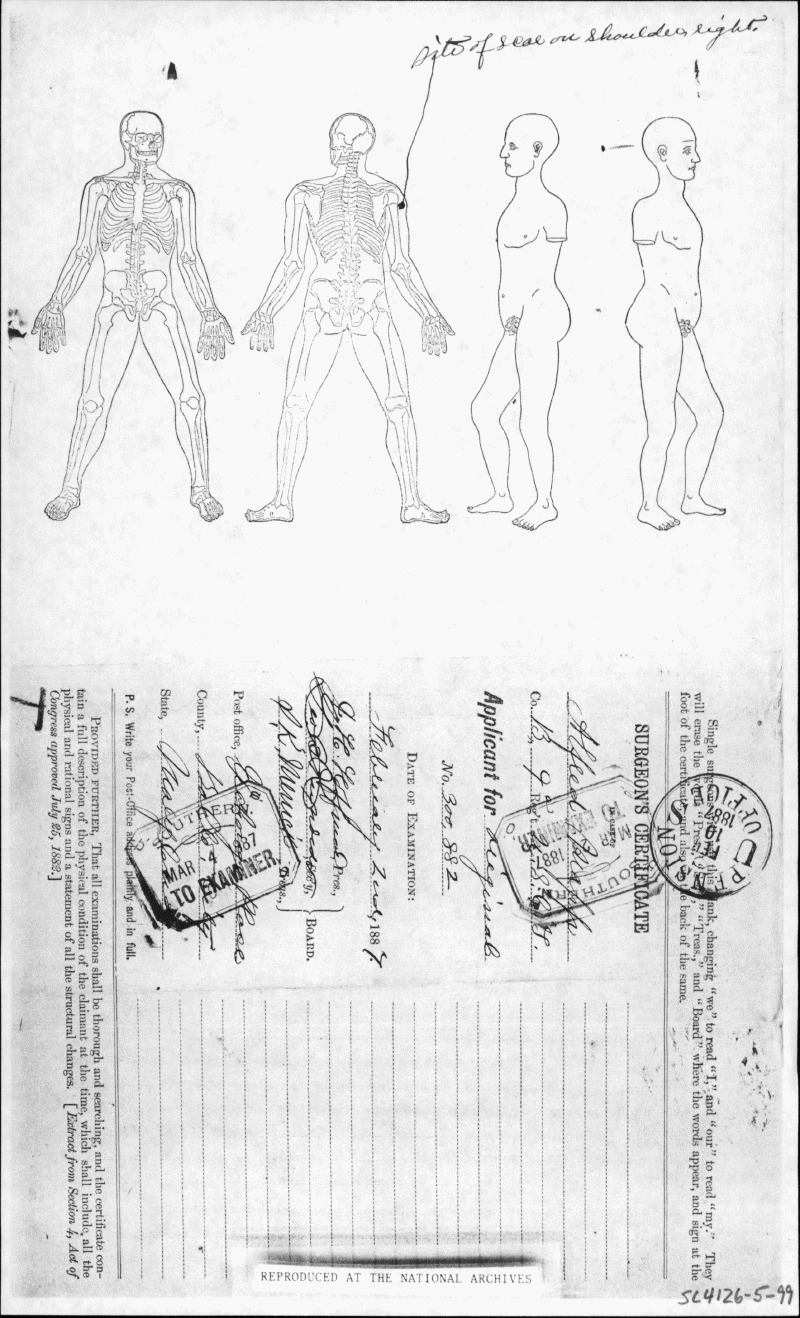 site of scar on shoulder, right.
Single surgeons this blank, changing “we” to read “I,” and “our” to read “my.” They
will erase the words “Pres.,” “Sec’y,” “Treas.,” and “Board” where the words appear, and sign at the
foot of the certificate and also the back of the same.
U. S.
PENSION
FEB
10
1887
OFFICE
SURGEON'S CERTIFICATE
IN CASE OF
Alfred
Co. B, 9 Reg't
SOUTHERN
1887
TO EXAMINER.
Applicant for Original
No. 300,882
DATE OF EXAMINATION:
February 2nd, 1887.
Pres.,
Sec'y,
Treas.,
BOARD.
Post office,
County,
State,
SOUTHERN
MAR 4 1887
TO EXAMINER.
P. S. Write your Post-Office address plainly and in full.
PROVIDED FURTHER, That all examinations shall be thorough and searching, and the certificate con-
tain a full description of the physical condition of the claimant at the time, which shall include all the
physical and rational signs and a statement of all the structural changes. [Extract from Section 4, Act of
Congress approved July 25, 1882.]
REPRODUCED AT THE NATIONAL ARCHIVES
SC4126-5-99